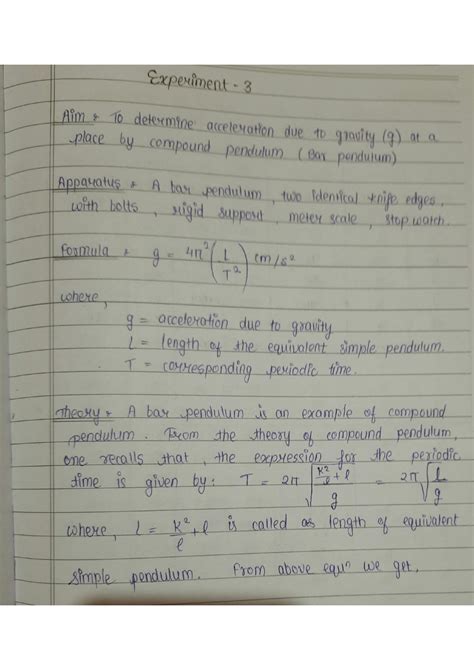 Experiment - 3
Aim * To determine acceleration due to gravity (g) at a
place by compound pendulum (Bar pendulum)
Apparatus * A bar pendulum, two identical knife edges,
with bolts, rigid support, meter scale, stop watch.
Formula * g = 4π² (L / T²) cm/s²
where,
g = acceleration due to gravity
L = length of the equivalent simple pendulum.
T = corresponding periodic time.
Theory * A bar pendulum is an example of compound
pendulum. From the theory of compound pendulum,
one recalls that, the expression for the periodic
time is given by: T = 2π √((K²/l + l) / g) = 2π √(L/g)
where, L = K²/l + l is called as length of equivalent
simple pendulum. From above equⁿ we get,